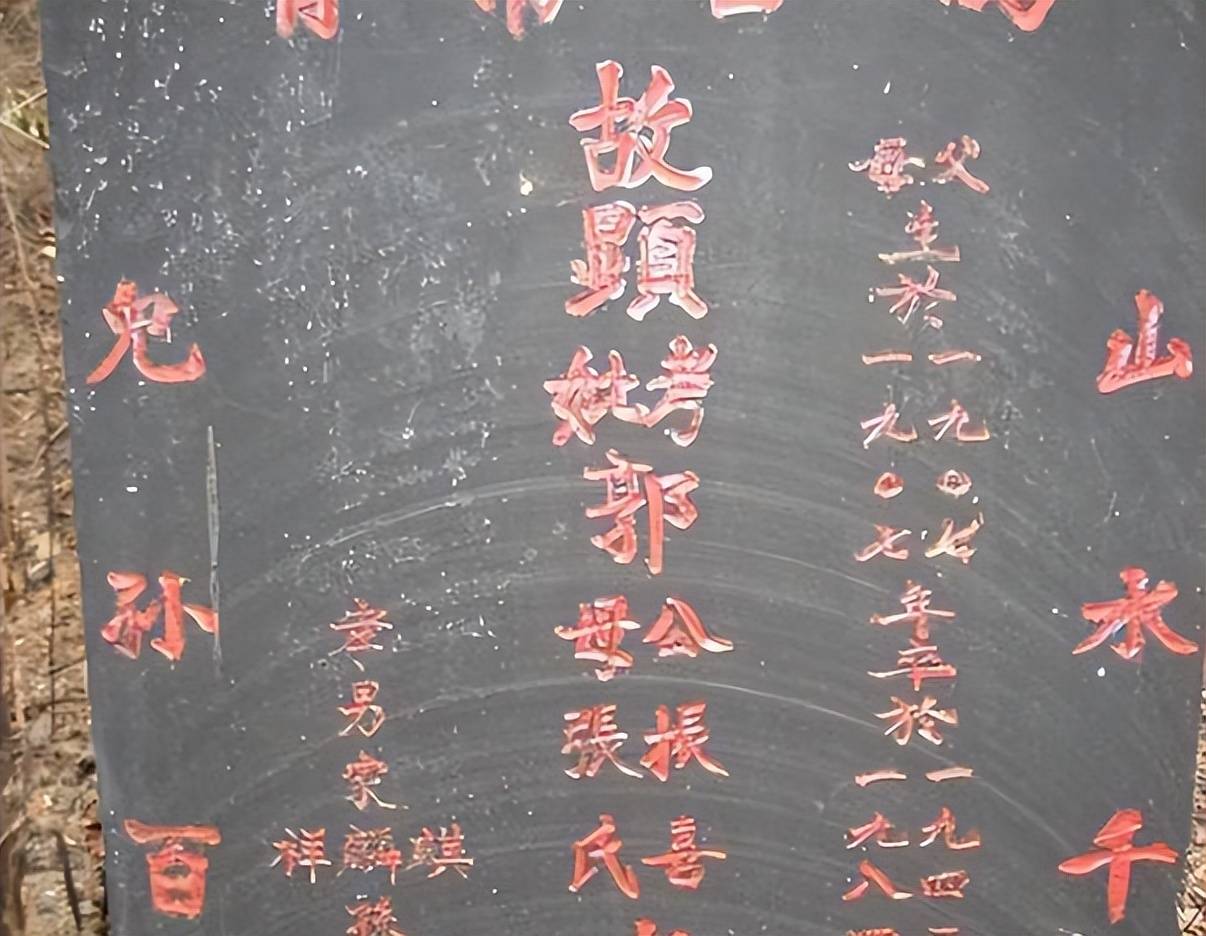 山水千
父 生於一九〇七年卒於一九四
母 生於一九〇七年卒於一九八
故顯考郭公振喜
故顯妣郭母張氏
孝男家
麒
麟
祥
兒孫百